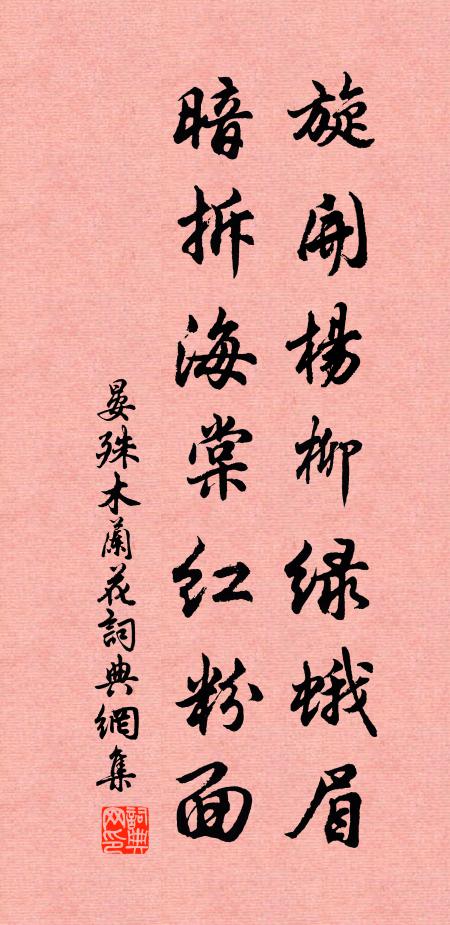 旋開楊柳绿蛾眉
暗拆海棠红粉面
晏殊木蘭花詞典網集
詞典
网印